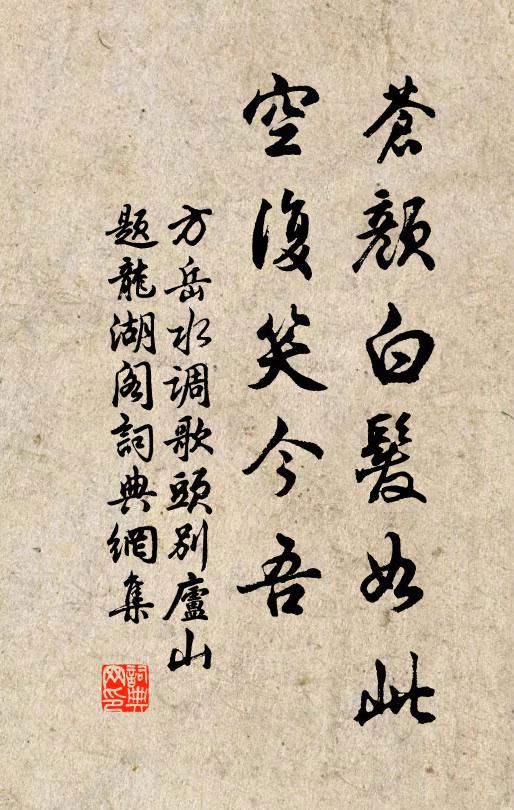 蒼顏白髮如此
空復笑今吾
方岳水调歌頭別廬山
题龍湖阁詞典網集
詞典
网印